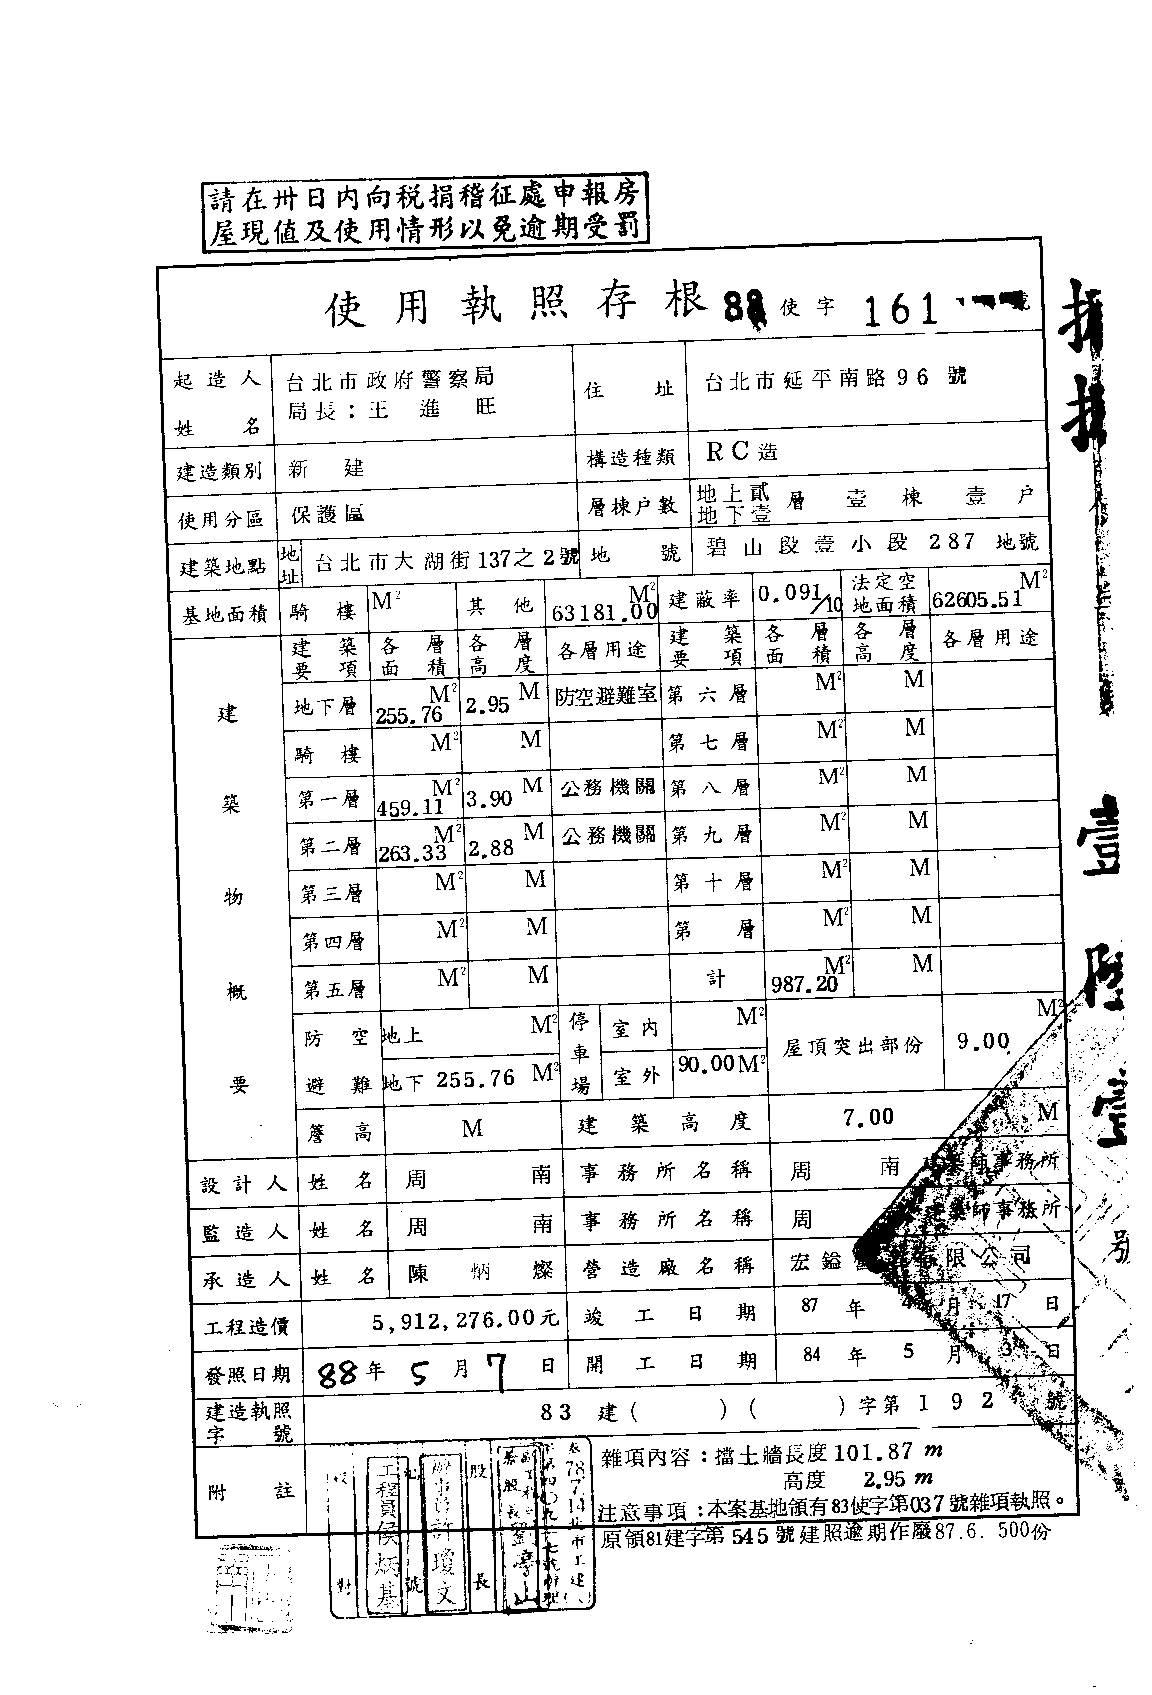 請在卅日內向稅捐稽征處申報房
屋現值及使用情形以免逾期受罰
使用執照存根 88 使字 161 號
起造人姓名 台北市政府警察局 局長：王進旺 住址 台北市延平南路96號
建造類別 新建 構造種類 RC造
使用分區 保護區 層棟戶數 地上貳 地下壹 層 壹棟 壹戶
建築地點 地址 台北市大湖街137之2號 地號 碧山段壹小段287地號
基地面積 騎樓 M² 其他 63181.00 M² 建蔽率 0.091/10 法定空地面積 62605.51 M²
建築物概要
建築要項 各層面積 各層高度 各層用途 建築要項 各層面積 各層高度 各層用途
地下層 255.76 M² 2.95 M 防空避難室 第六層 M² M
騎樓 M² M 第七層 M² M
第一層 459.11 M² 3.90 M 公務機關 第八層 M² M
第二層 263.33 M² 2.88 M 公務機關 第九層 M² M
第三層 M² M 第十層 M² M
第四層 M² M 第 層 M² M
第五層 M² M 計 987.20 M² M
防空避難 地上 M² 停車場 室內 M² 屋頂突出部份 9.00 M²
地下 255.76 M² 室外 90.00 M²
簷高 M 建築高度 7.00 M
設計人 姓名 周南 事務所名稱 周南建築師事務所
監造人 姓名 周南 事務所名稱 周 建築師事務所
承造人 姓名 陳炳燦 營造廠名稱 宏鎰 有限公司
工程造價 5,912,276.00元 竣工日期 87年4月17日
發照日期 88年5月7日 開工日期 84年5月3日
建造執照字號 83建( )( )字第192號
附註
雜項內容：擋土牆長度101.87m
高度 2.95m
注意事項：本案基地領有83使字第037號雜項執照。
原領81建字第545號建照逾期作廢87.6. 500份
工程員侯炳基
許瓊文
股長
壹
陸
壹
號